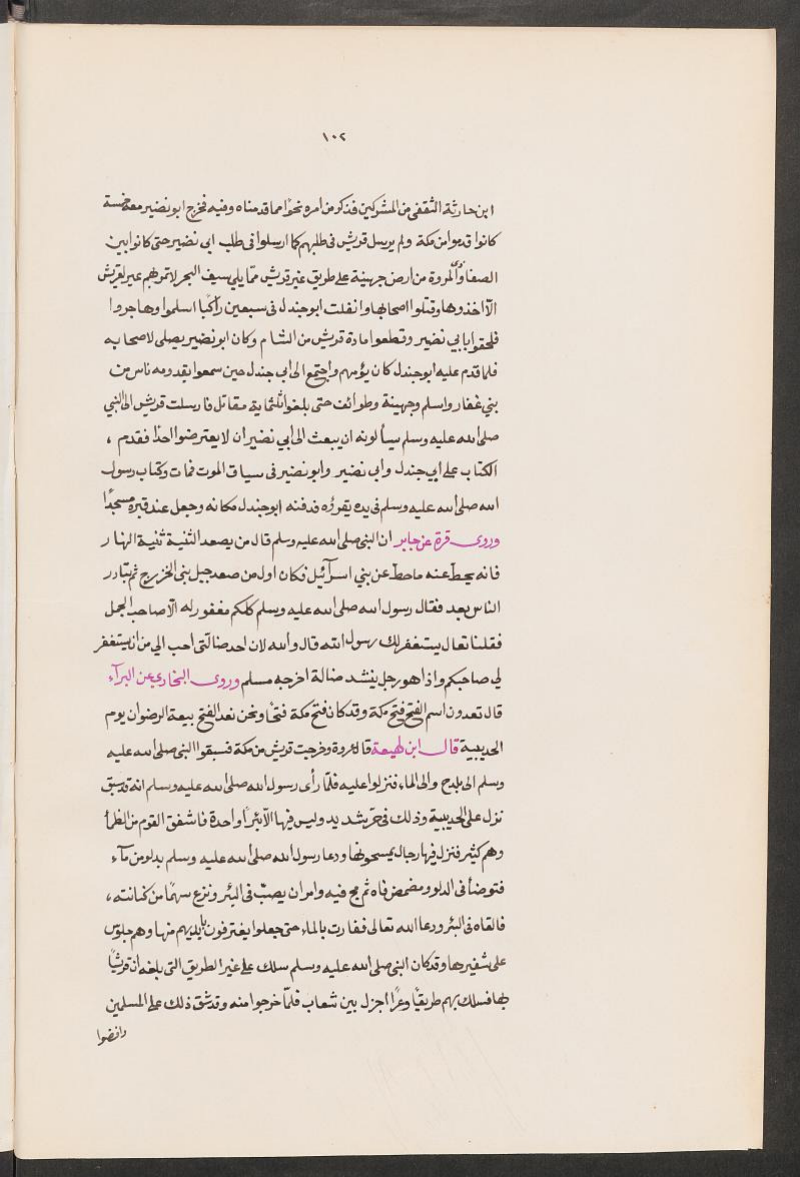 ١٠٢
ابن حارثة الثقفى من المشركين فذكر من امره نحوًا مما قدمناه وفيه فخرج ابو نضير معه خمسة
كانوا قدموا من مكة ولم يرسل قريش فى طلبهم كما ارسلوا فى طلب ابى نضير حتى كانوا بين
الصفا وذى المروة من ارض جهينة على طريق عير قريش ممّا يلي سيف البحر لا تمر بهم عير لقريش
الّا اخذوها وقتلوا اصحابها وانفلت ابو جندل فى سبعين راكبًا اسلموا وهاجروا
فلحقوا بابي نضير وقطعوا مادة قريش من الشام وكان ابو نضير يصلى لاصحابه
فلما قدم عليه ابو جندل كان يؤمهم واجتمع الى ابى جندل حين سمعوا بقدومه ناس من
بني غفار واسلم وجهينة وطوائف حتى بلغوا ثلثماية مقاتل فارسلت قريش الى النبي
صلى الله عليه وسلم يسألونه ان يبعث الى ابي نضير ان لا يعترضوا احدًا فقدم ،
الكتاب على ابي جندل وابى نضير وابو نضير فى سياق الموت فمات وكتاب رسول
الله صلى الله عليه وسلم فى يده يقرؤه فدفنه ابو جندل مكانه وجعل عند قبره مسجدًا
وروى قرة عن جابر ان النبى صلى الله عليه وسلم قال من يصعد الثنية ثنية المرار
فانه يحطّ عنه ما حطّ عن بني اسرآئيل فكان اول من صعد خيل بنى الخزرج ثم تبادر
الناس بعد فقال رسول الله صلى الله عليه وسلم كلكم مغفور له الّا صاحب الجمل
فقلنا تعال يستغفر لك رسول الله قال والله لان اجد ضالّتى احب الي من ان يستغفر
لي صاحبكم واذا هو رجل ينشد ضالة اخرجه مسلم وروى البخاري عن البرآء
قال تعدون اسم الفتح فتح مكة وقد كان فتح مكة فتحًا ونحن نعد الفتح بيعة الرضوان يوم
الحديبية قال ابن لهيعة قال عروة وخرجت قريش من مكة فسبقوا النبى صلى الله عليه
وسلم الى بلدح والى الماء فنزلوا عليه فلمّا رأى رسول الله صلى الله عليه وسلم انه قد سبق
نزل على الحديبية وذلك فى حرّ شديد وليس فيها الّا بئرًا واحدة فاشفق القوم من الظمأ
وهم كثير فنزل فيها رجال يمتحونها ودعا رسول الله صلى الله عليه وسلم بدلو من مآء
فتوضأ فى الدلو ومضمض فاه ثم مج فيه وامر ان يصبّ فى البئر ونزع سهمًا من كنانته ،
فالقاه فى البئر ودعا الله تعالى ففارت بالماء حتى جعلوا يغترفون بايديهم منها وهم جلوس
على شفيرها وقد كان النبى صلى الله عليه وسلم سلك على غير الطريق التى بلغه ان قريشًا
بها فسلك بهم طريقًا وعرًا اجزل بين شعاب فلمّا خرجوا منه وقد شق ذلك على المسلمين
وافضوا